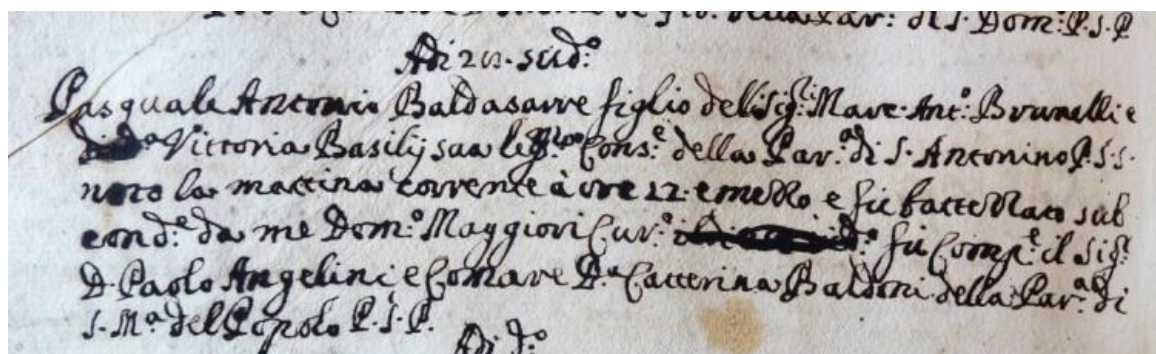 della Par: di S. Dom:º P. S. P
Adi sud:º
Pasquale Antonio Baldasarre figlio delli Sig:ri Marc. Ant:º Brunelli e
Vittoria Basilij sua Cons:e della Par:a di S. Antonino P. S. S.
nato la mattina corrente à ore 12. e mezzo e fù battezzato sub
cond:e da me Dom:º Maggiori Cur:º fù Comp:e il Sig:r
D. Paolo Angelini e Comare D:a Catterina Baldoni della Par:a di
S. M:a del Popolo P. S. P.
Adi d:º